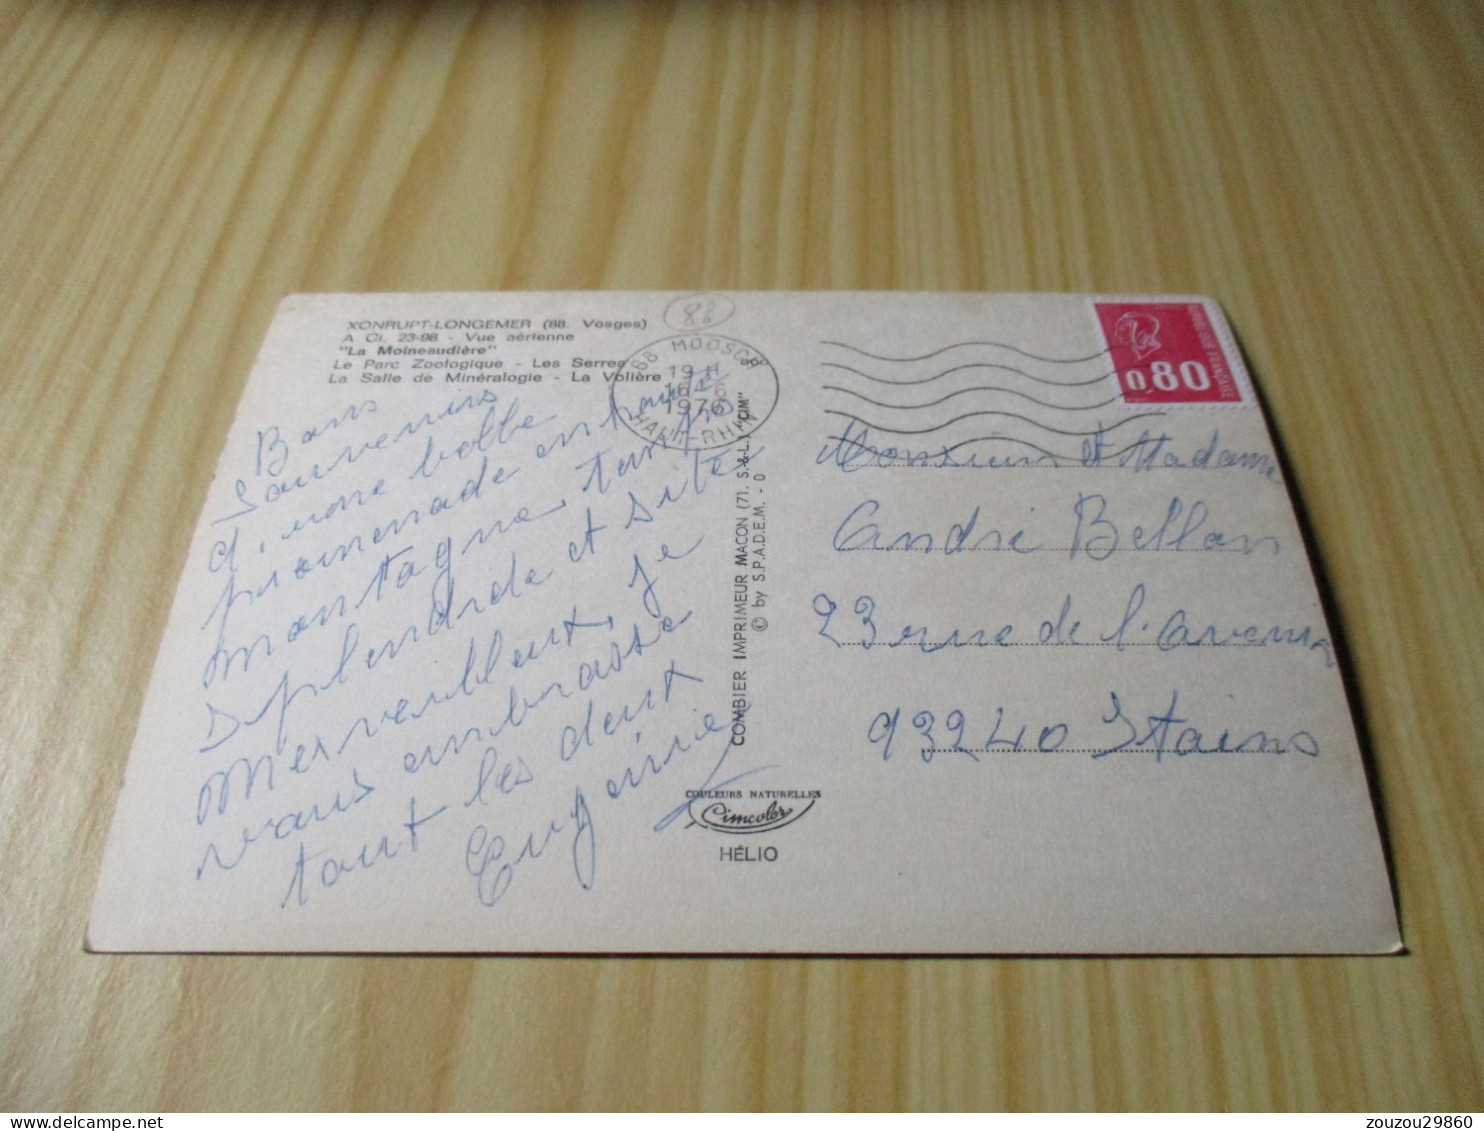 88
XONRUPT-LONGEMER (88. Vosges)
A Ci. 23-98 - Vue aérienne
"La Moineaudière"
Le Parc Zoologique - Les Serres
La Salle de Minéralogie - La Volière
68 MOOSCH
19 H
16
1976
HAUT-RHIN
RÉPUBLIQUE FRANÇAISE
0,80
Bons
Souvenirs
d'une belle
promenade en haute
montagne, temps
splendide et site
merveilleux, je
vous embrasse
tout les deux
Eugénie
COMBIER IMPRIMEUR MACON (71. S.-&-L.) "CIM"
© by S.P.A.D.E.M. - 0
Monsieur et Madame
André Bellan
23 rue de l'avenir
93240 Stains
COULEURS NATURELLES
Cimcolor
HÉLIO
zouzou29860